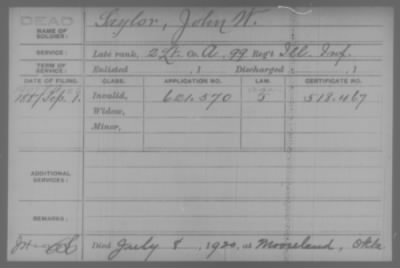 DEAD
NAME OF SOLDIER:
Saylor, John W.
SERVICE:
Late rank, 2 Lt. Co. A, 99 Reg't Ill. Inf.
TERM OF SERVICE:
Enlisted , 1 Discharged , 1
DATE OF FILING. CLASS. APPLICATION NO. LAW. CERTIFICATE NO.
1887 Sep. 1. Invalid, 621.570 5 518.467
Widow,
Minor,
ADDITIONAL SERVICES:
REMARKS:
Died July 8, 1920, at Mooreland, Okla